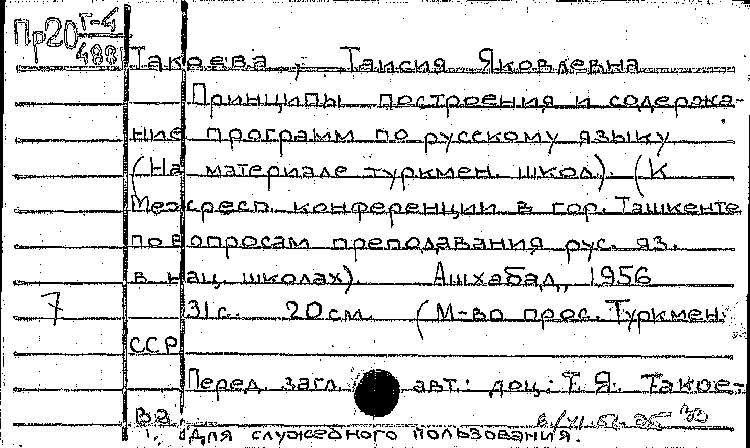 Пр20 Т-4
488
Такоева, Таисия Яковлевна
Принципы построения и содержа-
ние программ по русскому языку
(На материале туркмен. школ). (К
Межресп. конференции в гор. Ташкенте
по вопросам преподавания рус. яз.
в нац. школах). Ашхабад, 1956
7 31 с. 20 см. (М-во прос. Туркмен.
ССР
Перед загл. авт.: доц. Т. Я. Такое-
ва
Для служебного пользования.